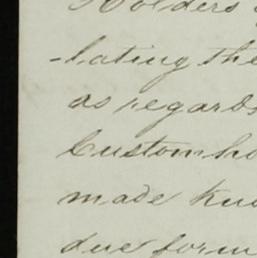 Holders
-lating the
as regards
Customho
made kno
due form